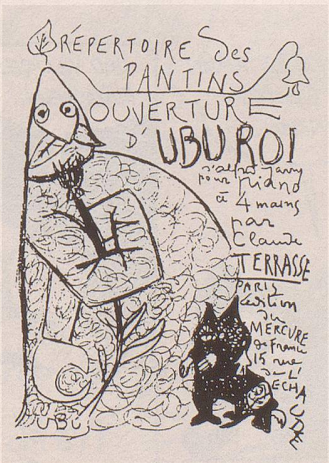 RÉPERTOIRE des
PANTINS
OUVERTURE
D'UBU ROI
d'alfred Jarry
pour piano
à 4 mains
par
Claude
TERRASSE
PARIS
édition
du
MERCURE
de France
15 rue
de L'
ECHAUDÉ
UBU